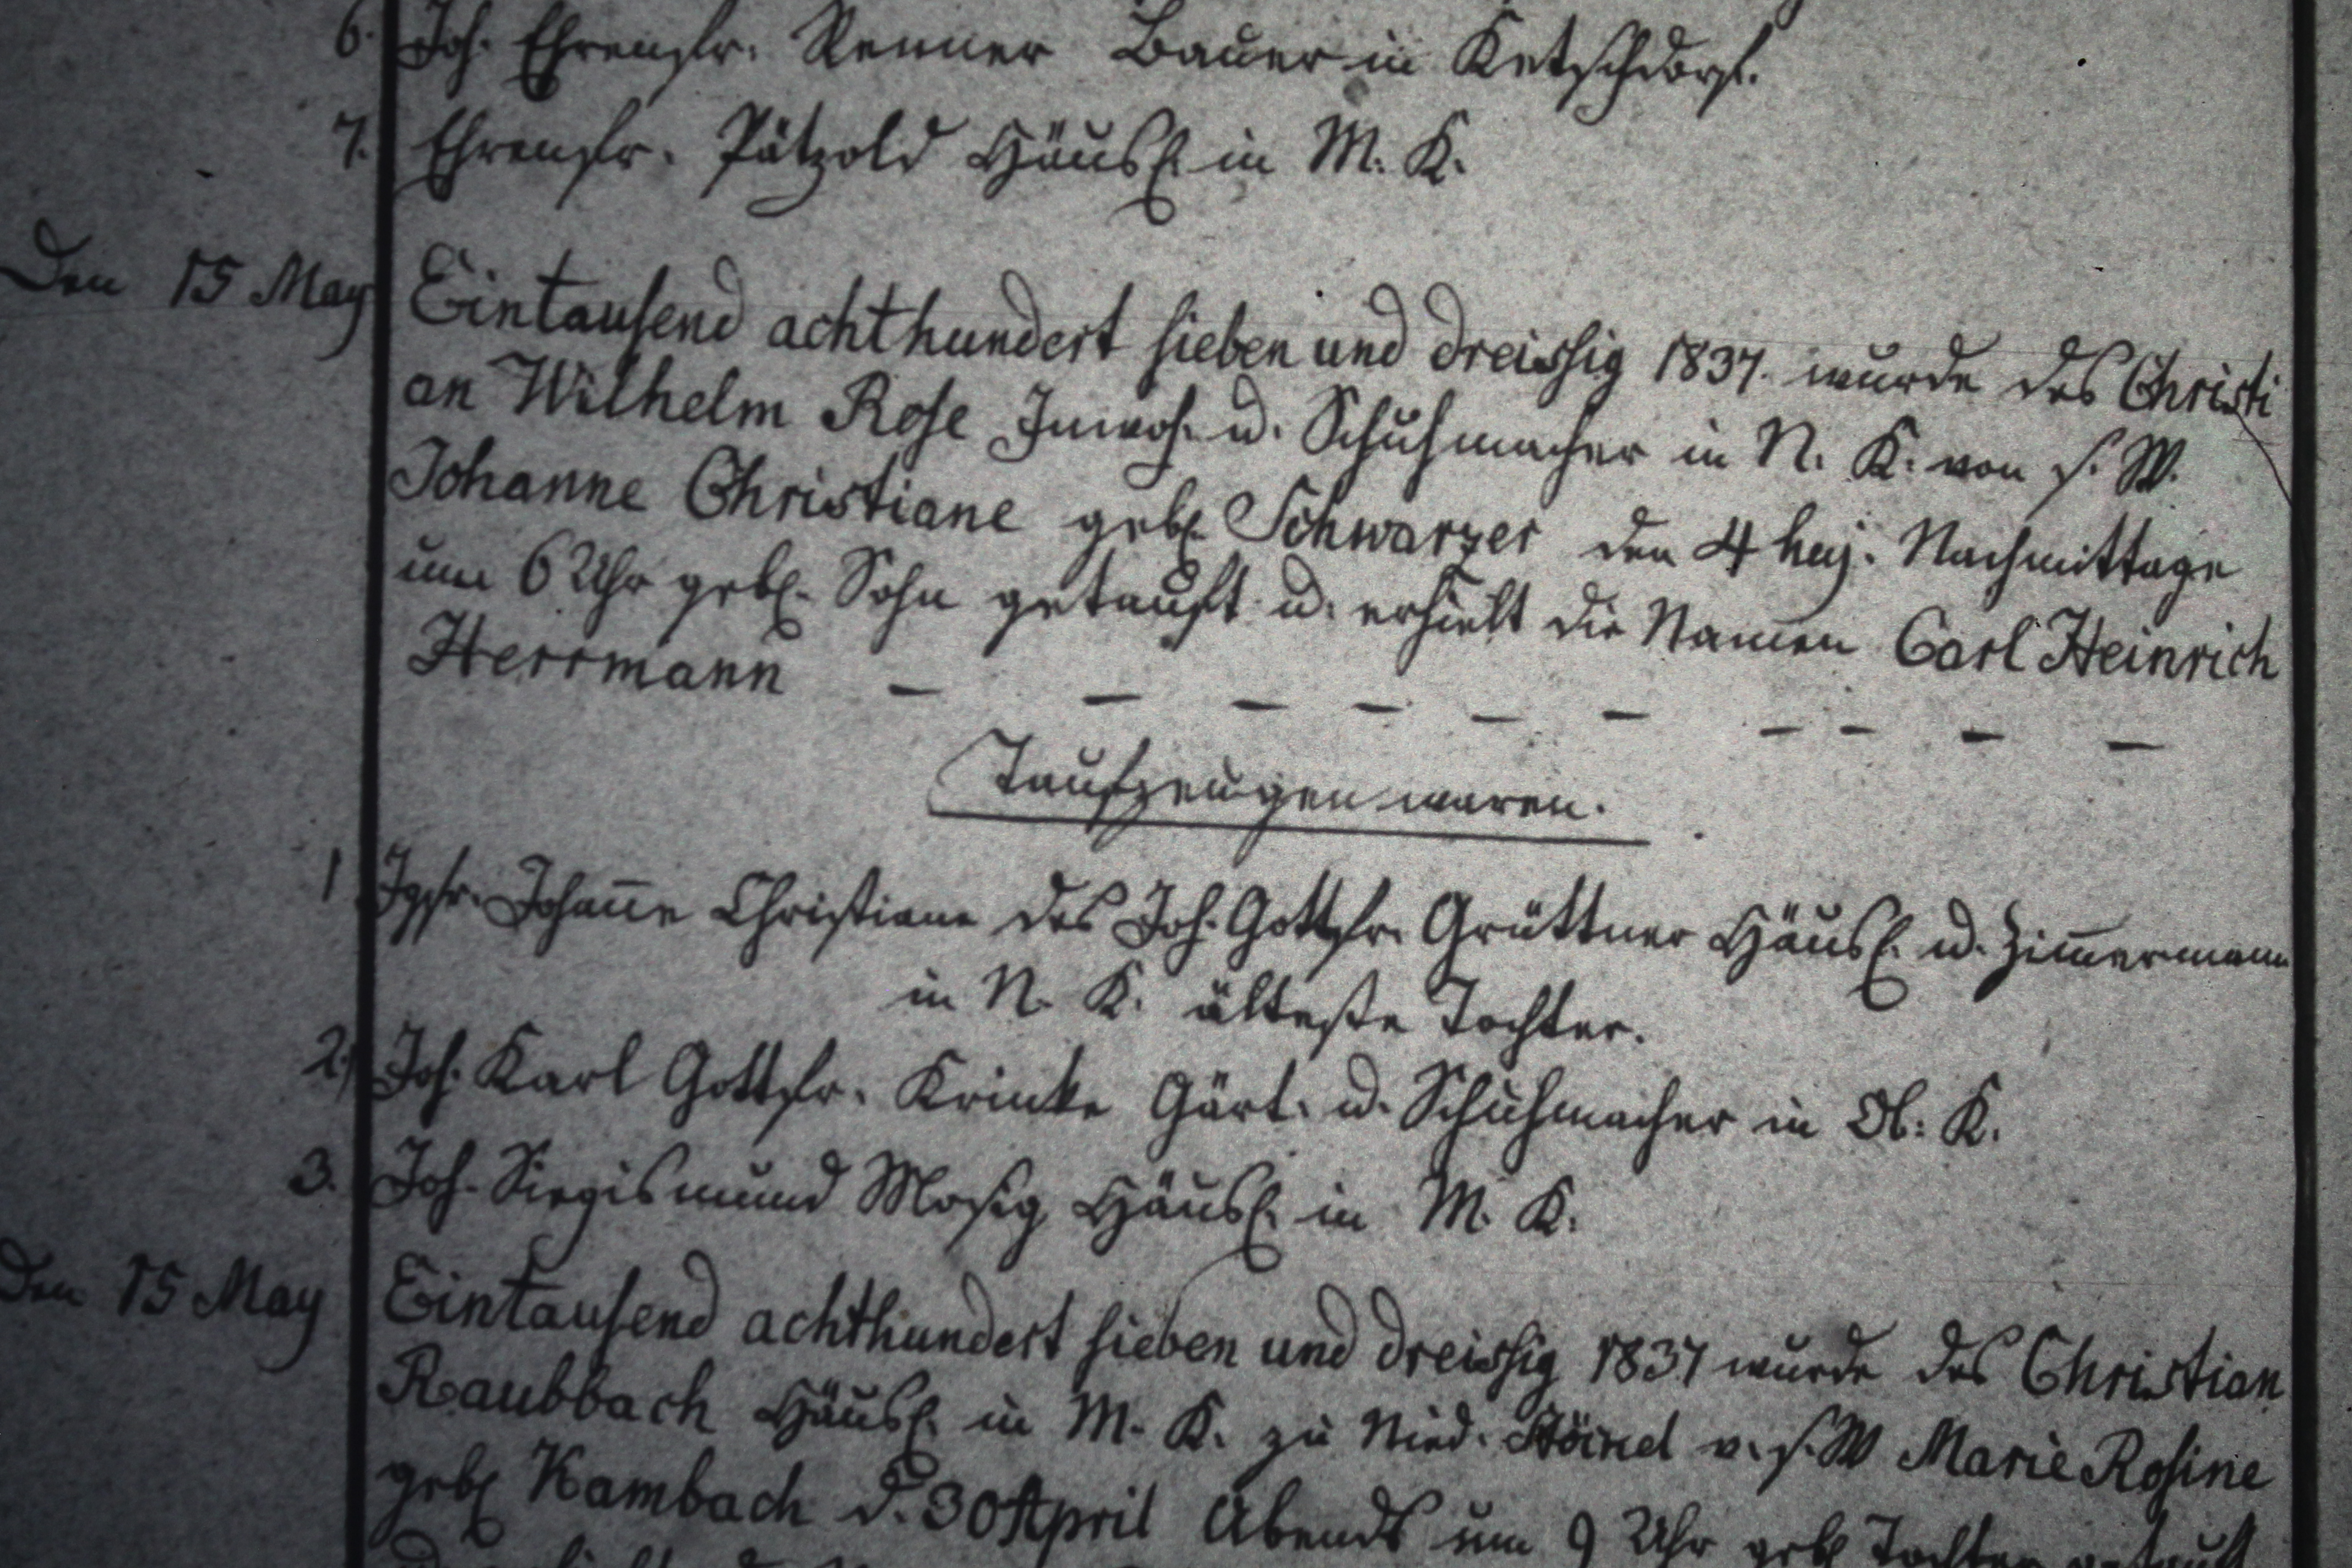 6. Joh. Ehrenfr. Renner Bauer in Ketschdorf.
7. Ehrenfr. Pätzold Häusl. in M. K.
Den 15 May Eintausend achthundert sieben und dreissig 1837. wurde des Christi
an Wilhelm Rose Inwoh. u. Schuhmacher in N. K. von s. W.
Johanne Christiane gebl. Schwarzer den 4 huj. Nachmittage
um 6 Uhr gebl. Sohn getauft u. erhielt die Namen Carl Heinrich
Herrmann – – – – – – – – – –
Taufzeugen waren.
1 Jgfr. Johanne Christiane des Joh. Gottfr. Grüttner Häusl. u. Zimmermann
in N. K. älteste Tochter.
2. Joh. Karl Gottfr. Krinke Gärt. u. Schuhmacher in Ob: K.
3. Joh. Siegismund Mosig Häusl. in M. K.
Den 15 May Eintausend achthundert sieben und dreissig 1837 wurde des Christian
Raubbach Häusl. in M. K. zu Nied. v. s. W Marie Rosine
gebl Kambach d. 30 April Abends um 9 Uhr gebl Tochter getauft